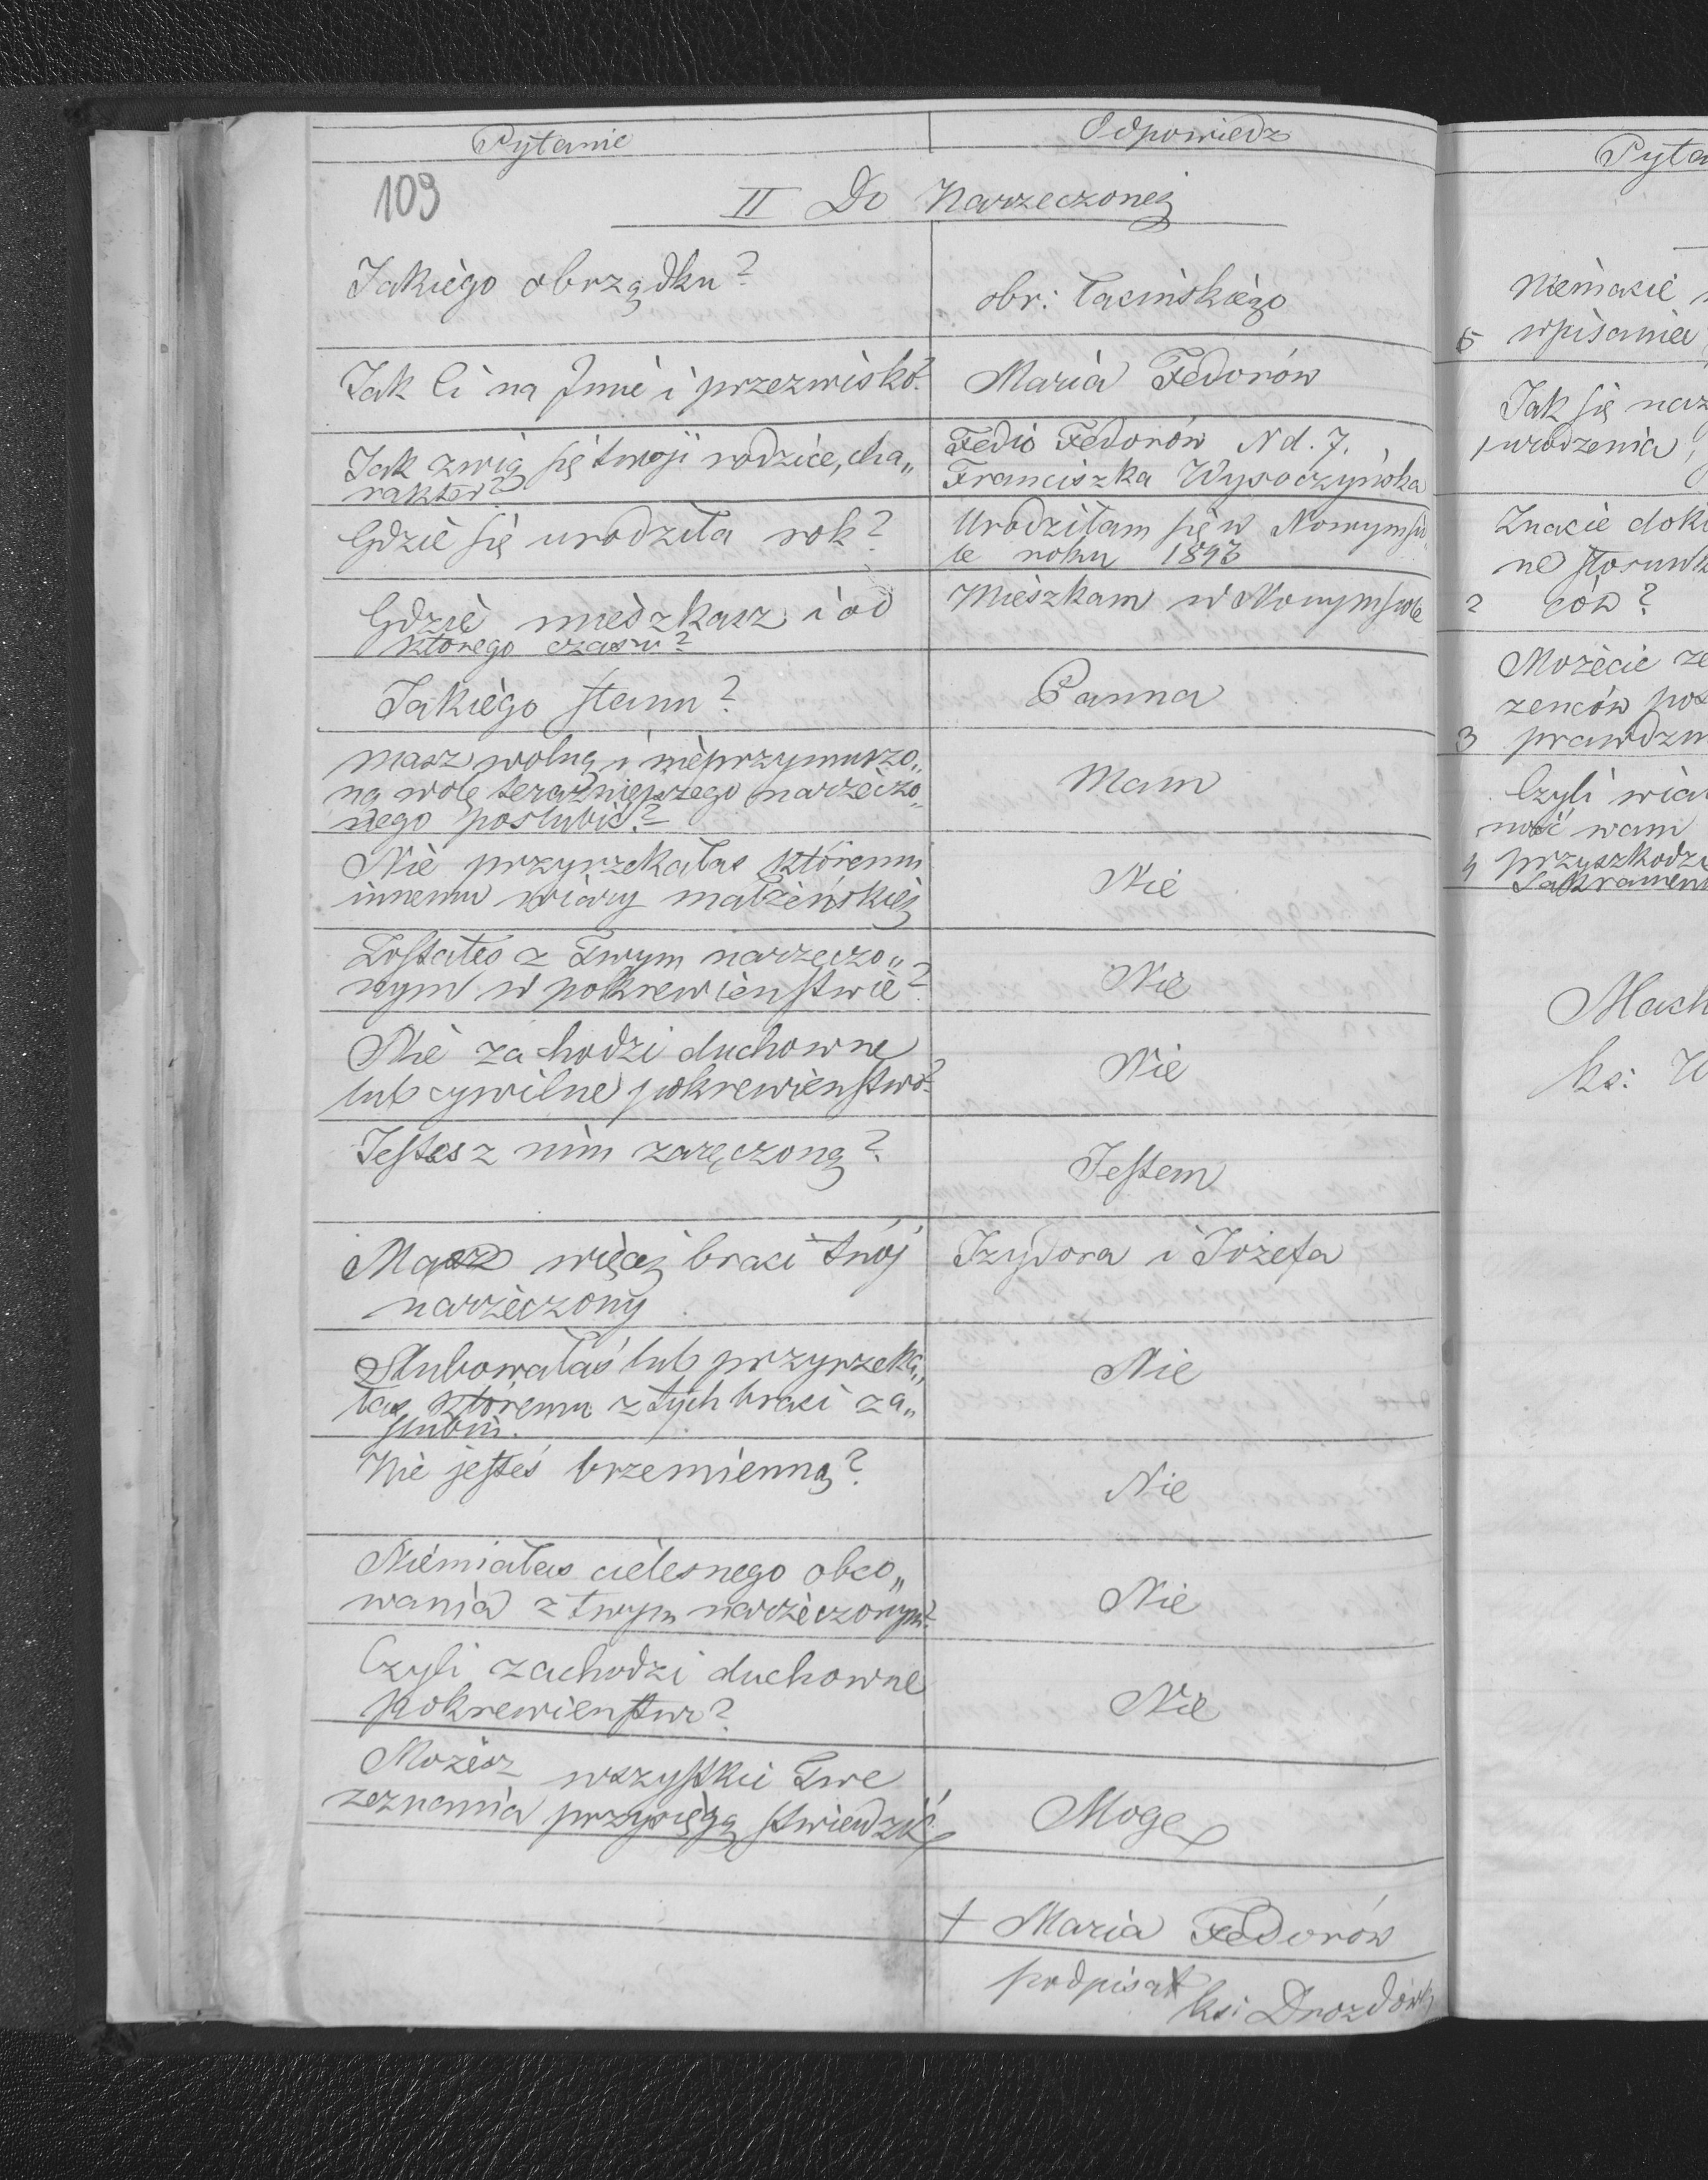 Pytanie
Odpowiedz
109
II Do Narzeczonej
Jakiego obrządku?
obr: łacińskiego
Jak Ci na Jmie i przezwisko?
Maria Fedorów
Jak zwią się twoji rodzice, cha„
rakter?
Fedio Fedorów Nd. 7.
Franciszka Wysoczyńska
Gdzie się urodziła rok?
Urodziłam się w Nowymsio
le roku 1893
Gdzie miedzkasz i od
którego czasu?
Mieszkam w Nowymsiole
Jakiego stanu?
Panna
masz wolną i nieprzymuszo„
ną wolę teraźniejszego narzeczo„
nego poslubić?
Mam
Nie przyrzekałas któremu
innemu wiary małżeńskiej
Nie
Zostałes z Twym narzęczo„
nym w pokrewieństwie?
Nie
Nie zachodzi duchowne
lub cywilne pokrewieństwo?
Nie
Jestes z nim zaręczoną?
Jestem
Masz więcej braci twój
narzeczony
Izydora i Józefa
Slubowałaś lub przyrzeka„
łas któremu z tych braci za„
slubin.
Nie
Nie jesteś brzemienną?
Nie
Niemiałas cielesnego obco„
wania z twym narzeczonym?
Nie
Czyli zachodzi duchowne
pokrewienstwo?
Nie
Możesz wszystkie Twe
zeznania przysięgą stwiedzić
Mogę
+ Maria Fedorów
podpisał
ks: Drozdowski
Pyta
Niemacie
5 wpisania
Jak się naz
1 urodzenia,
Znacie dok
ne stosunk
2 ców?
Możecie ze
zenców poz
3 prawdzi
Czyli wia
ność wam
4 przyszkodz
Sakrament
Mach
ks: